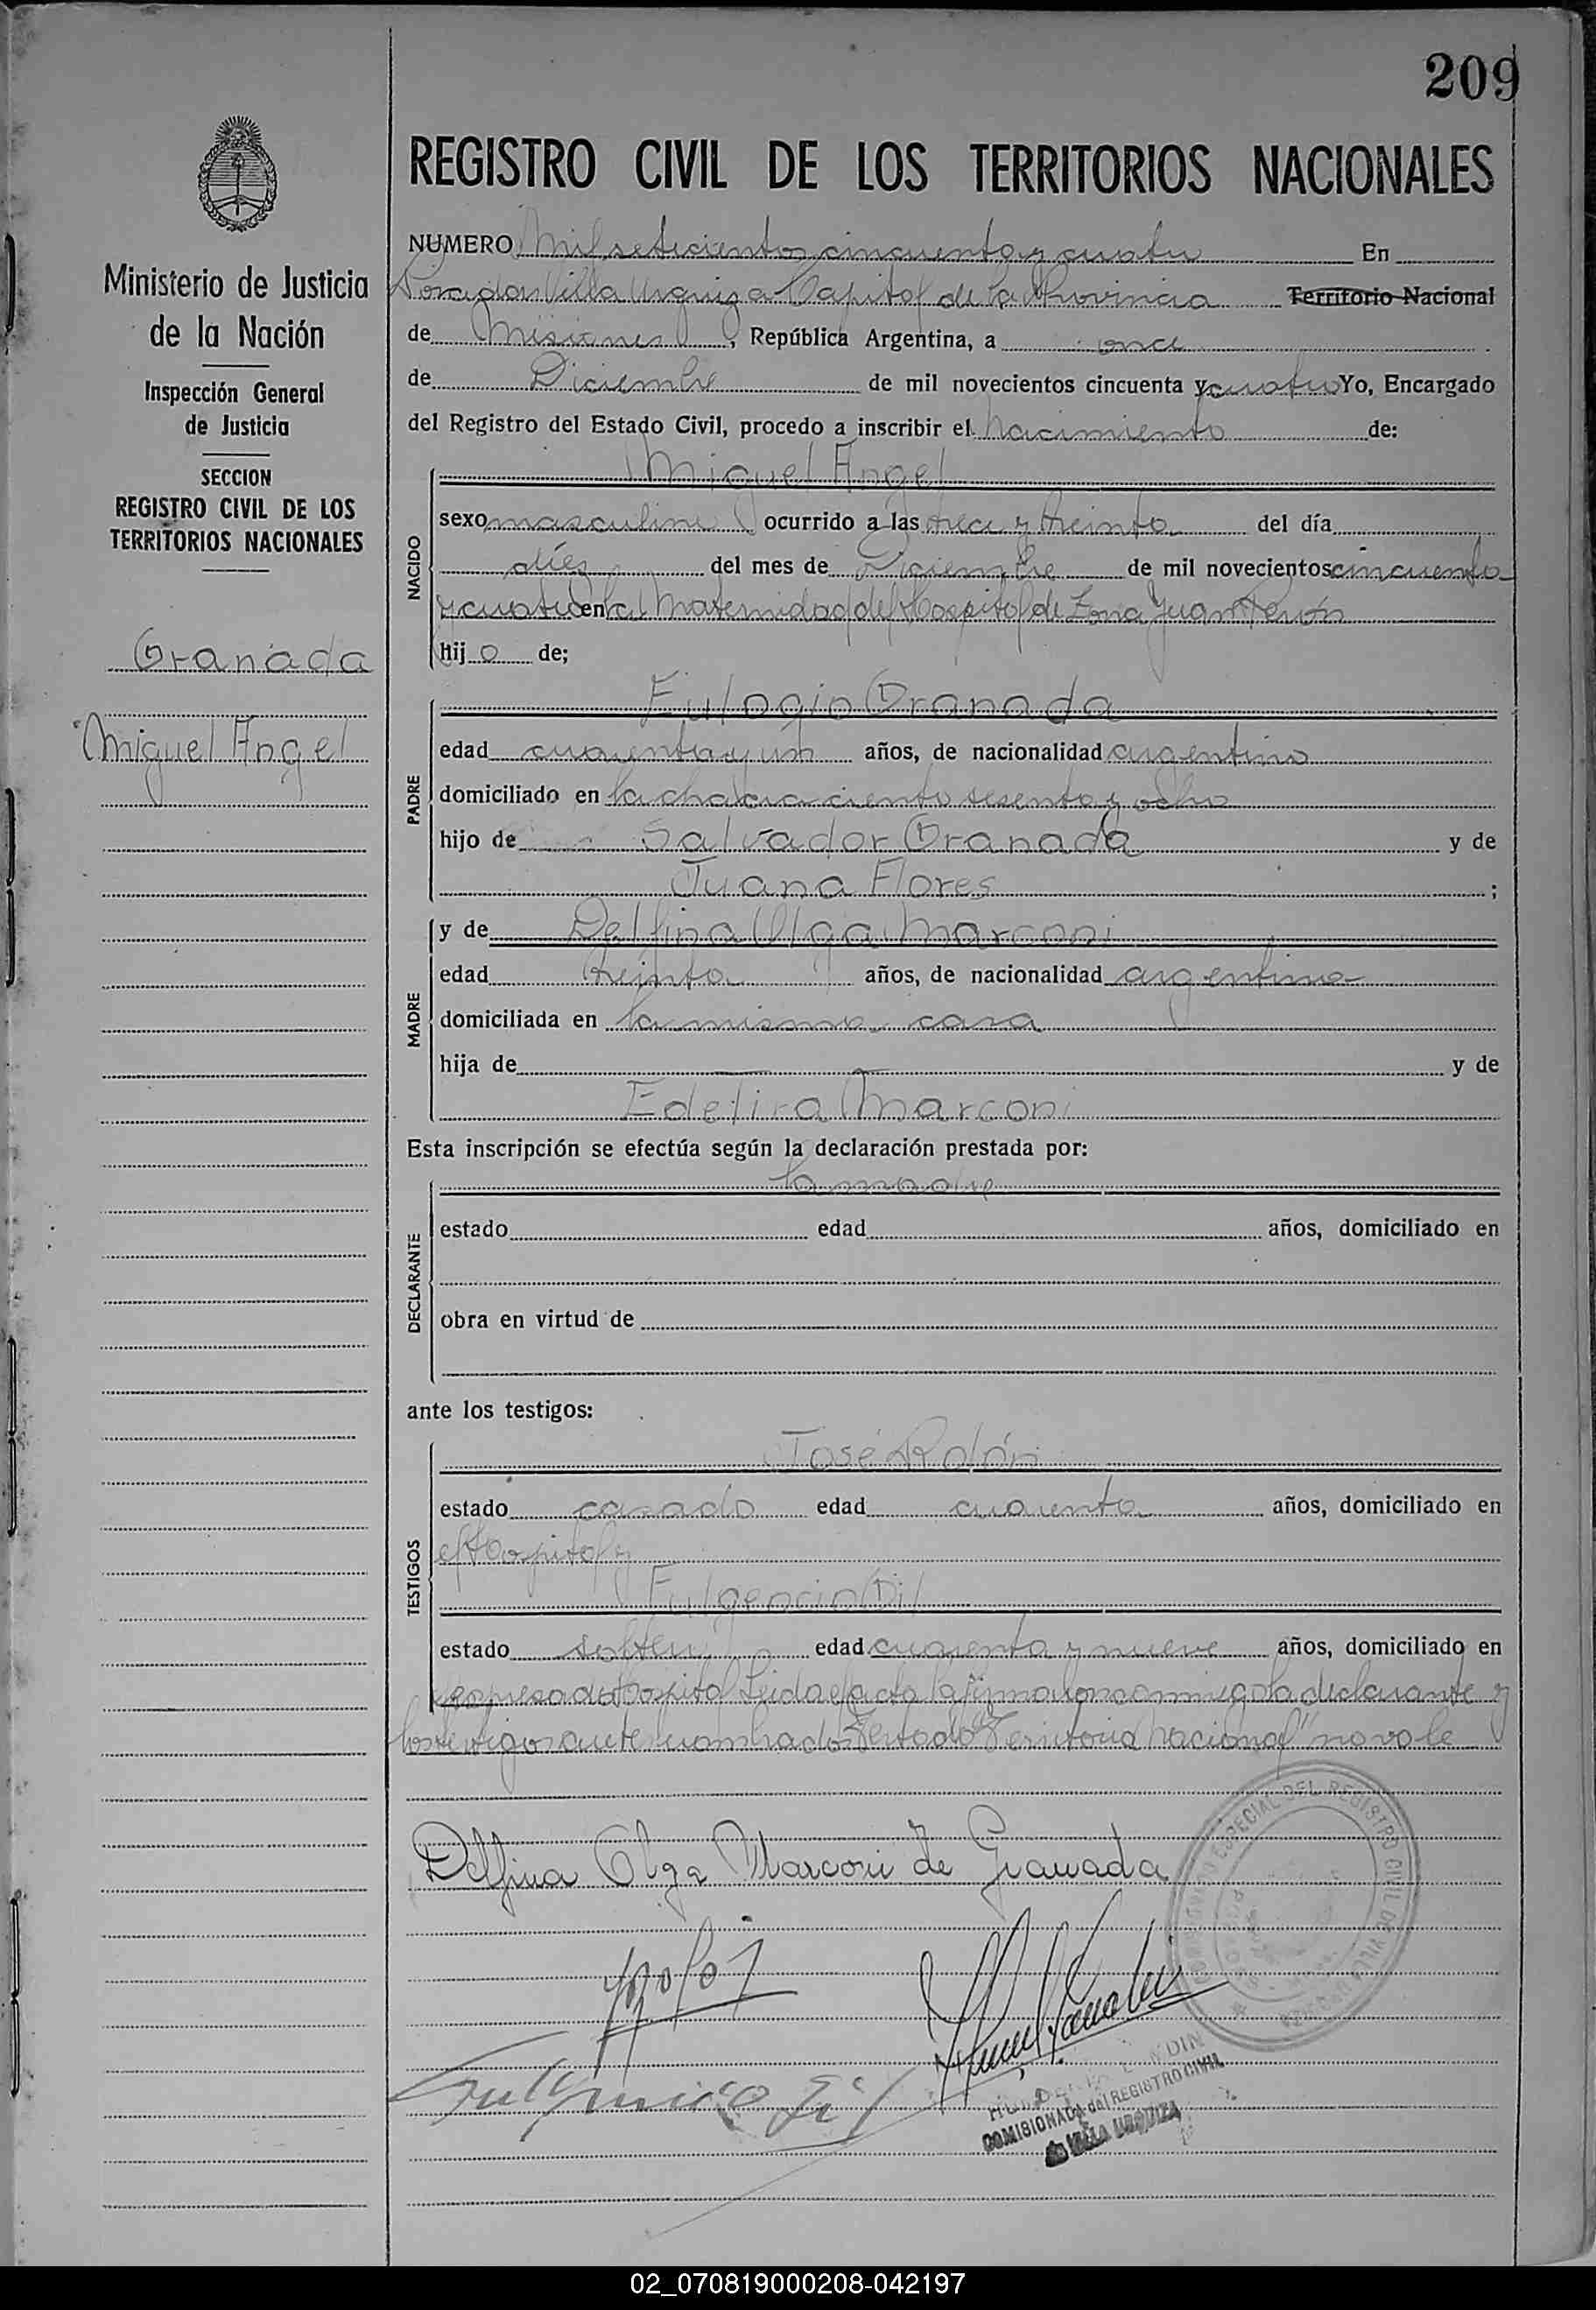 209
REGISTRO CIVIL DE LOS TERRITORIOS NACIONALES
Ministerio de Justicia
de la Nación
Inspección General
de Justicia
SECCION
REGISTRO CIVIL DE LOS
TERRITORIOS NACIONALES
Granada
Miguel Angel
NUMERO Mil setecientos cincuenta y cuatro En
Posadas Villa Urquiza Capital de la Provincia Territorio Nacional
de Misiones, República Argentina, a once
de Diciembre de mil novecientos cincuenta y cuatro Yo, Encargado
del Registro del Estado Civil, procedo a inscribir el nacimiento de:
NACIDO
Miguel Angel
sexo masculino ocurrido a las trece y treinta del día
diés del mes de Diciembre de mil novecientos cincuenta
y cuatro en la Maternidad del Hospital de Zona Juan Perón
hijo de;
PADRE
Eulogio Granada
edad cuarenta y un años, de nacionalidad argentino
domiciliado en la chacra ciento sesenta y ocho
hijo de Salvador Granada y de
Juana Flores ;
MADRE
y de Delfina Olga Marconi
edad treinta años, de nacionalidad argentina
domiciliada en la misma casa
hija de y de
Edelira Marconi
Esta inscripción se efectúa según la declaración prestada por:
DECLARANTE
la madre
estado edad años, domiciliado en
obra en virtud de
ante los testigos:
TESTIGOS
José Rolón
estado casado edad cuarenta años, domiciliado en
el Hospital y
Fulgencio Gil
estado soltero edad cuarenta y nueve años, domiciliado en
expresado Hospital Leida el acta la firmaron conmigo la declarante y
los testigos ante nombrados Testado "Territorio Nacional" no vale
Delfina Olga Marconi de Granada
COMISIONADO ESPECIAL DEL REGISTRO CIVIL DE VILLA URQUIZA
Fulgencio Gil
COMISIONADA del REGISTRO CIVIL
de VILLA URQUIZA
02_070819000208-042197